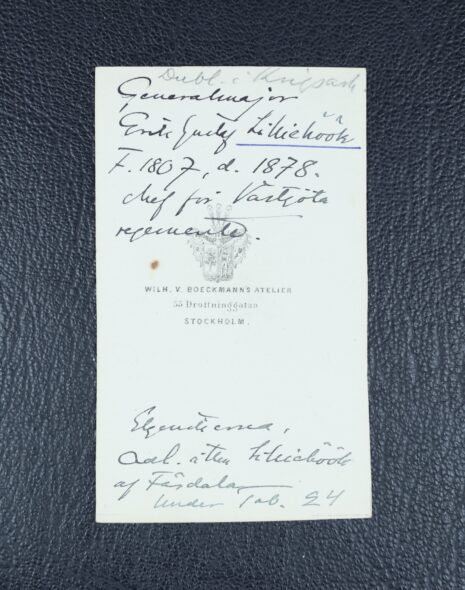 Dubl. i Krigsark.
Generalmajor
Erik Gustaf Lilliehöök
F. 1807, d. 1878.
chef för Västgöta
regemente.
WILH. V. BOECKMANNS ATELIER
55 Drottninggatan
STOCKHOLM.
Adl. ätten Lilliehöök
af Fårdala
under tab. 24